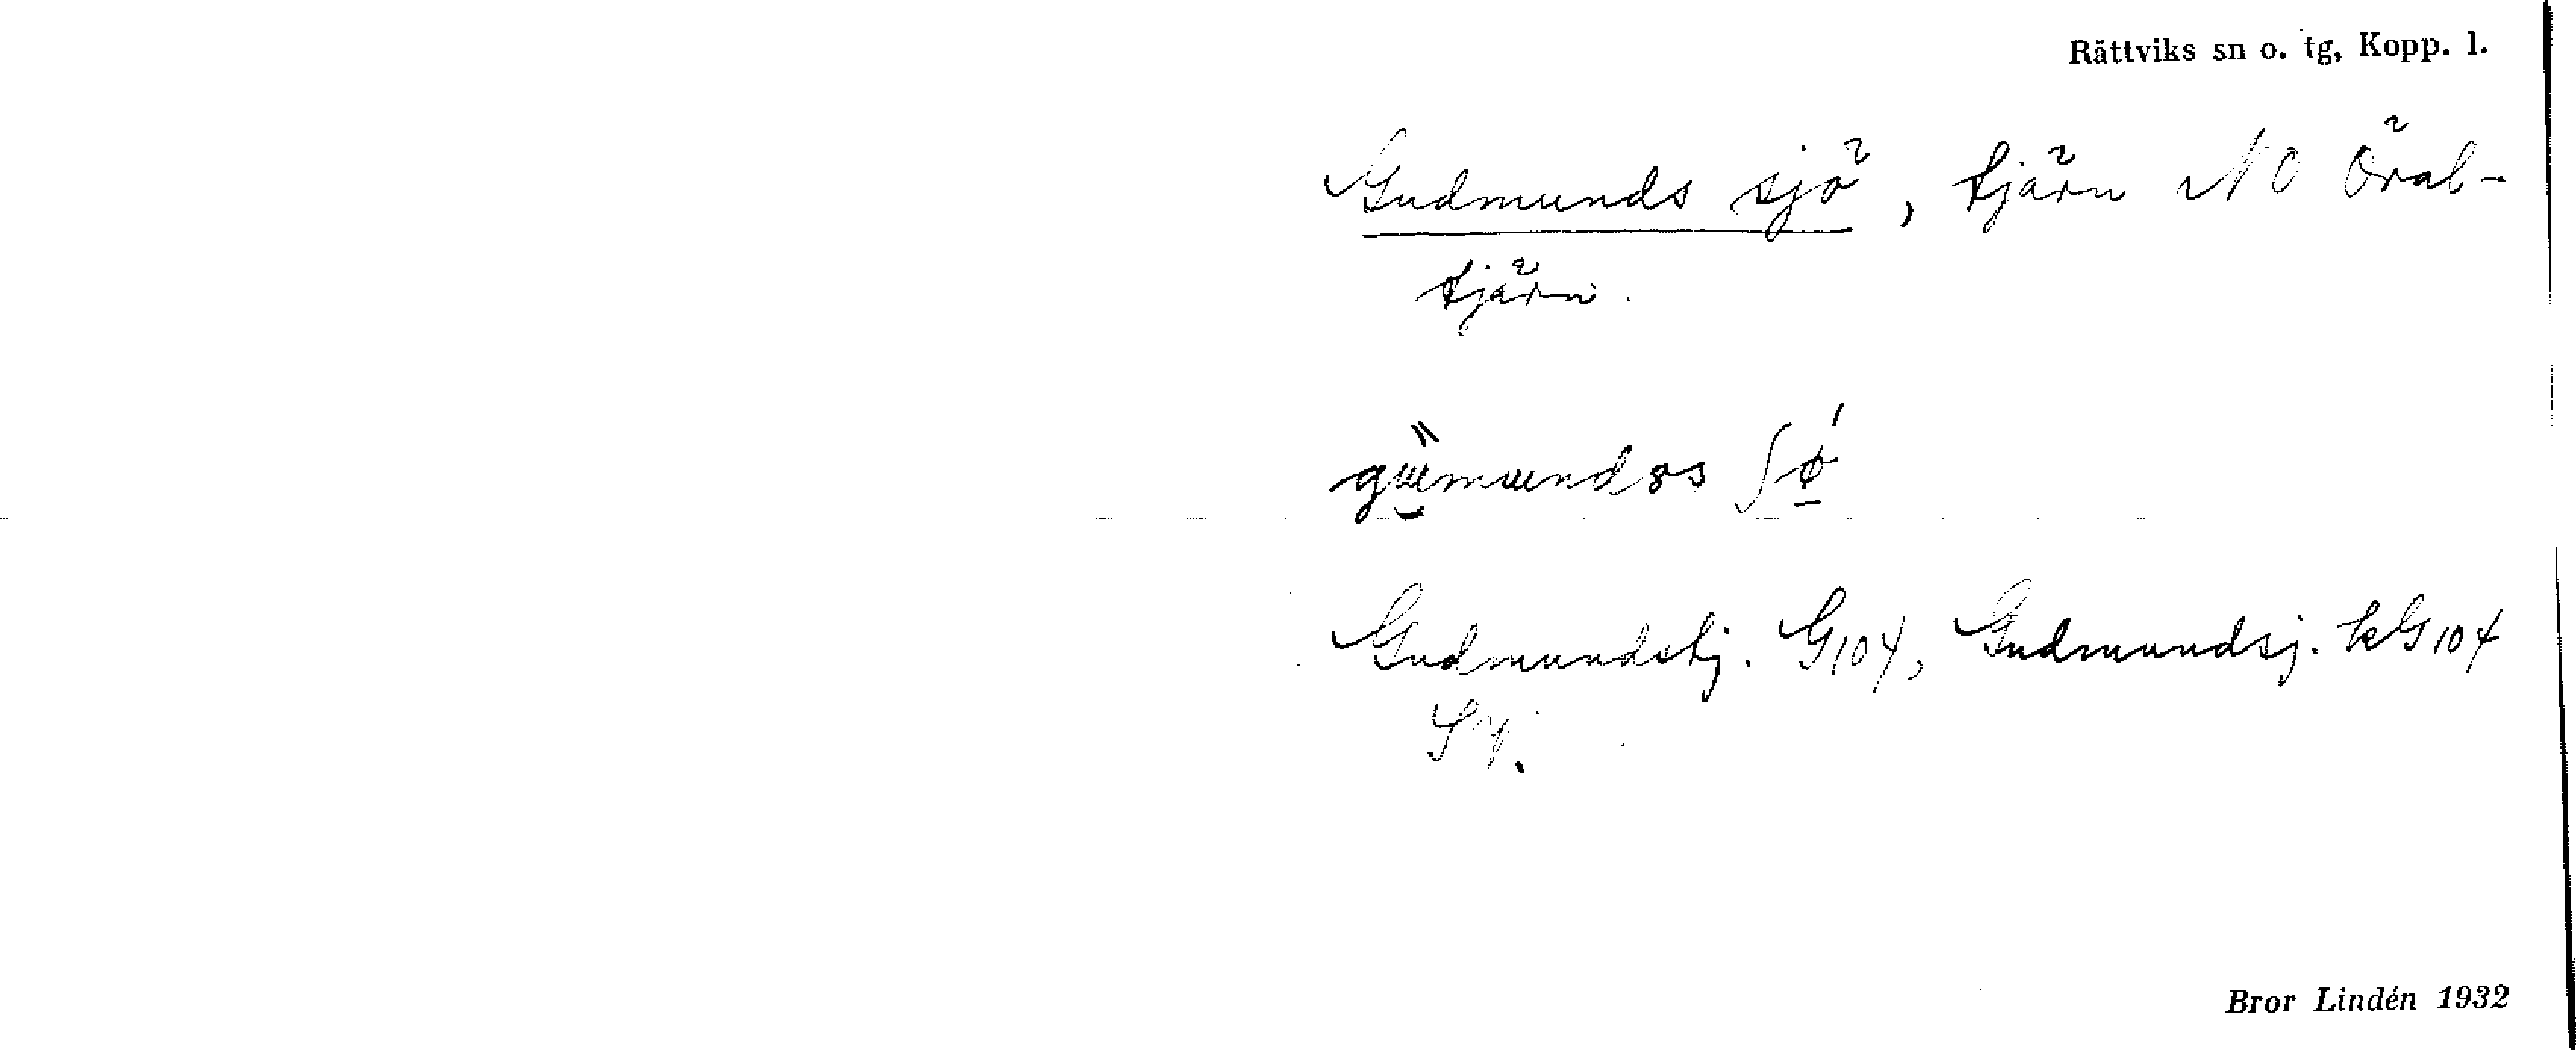 Rättviks sn o. tg, Kopp. l.
Gudmunds sjö, tjärn NO Öral-
tjärn.
Gudmundstj. G104, Gudmundsj. kG104
SV.
Bror Lindén 1932